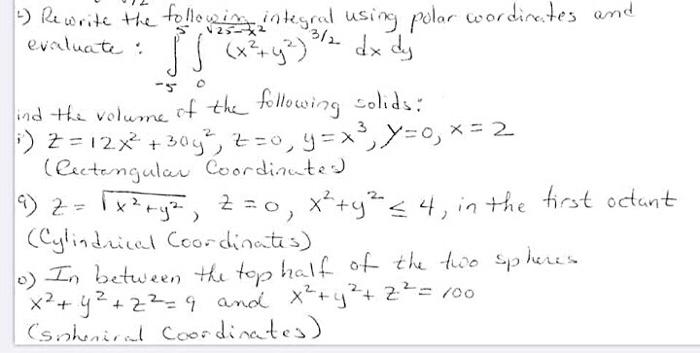 ) Rewrite the following integral using polar coordinates and
evaluate : ∫₋₅⁵ ∫₀^√25-x² (x²+y²)^3/2 dx dy
ind the volume of the following solids:
) Z = 12x² + 30y², z=0, y=x³, y=0, x=2
(Rectangular Coordinates)
9) z = √x²+y², z=0, x²+y² ≤ 4, in the first octant
(Cylindrical Coordinates)
0) In between the top half of the two spheres
x²+y²+z²=9 and x²+y²+z²=100
(Spherical Coordinates)